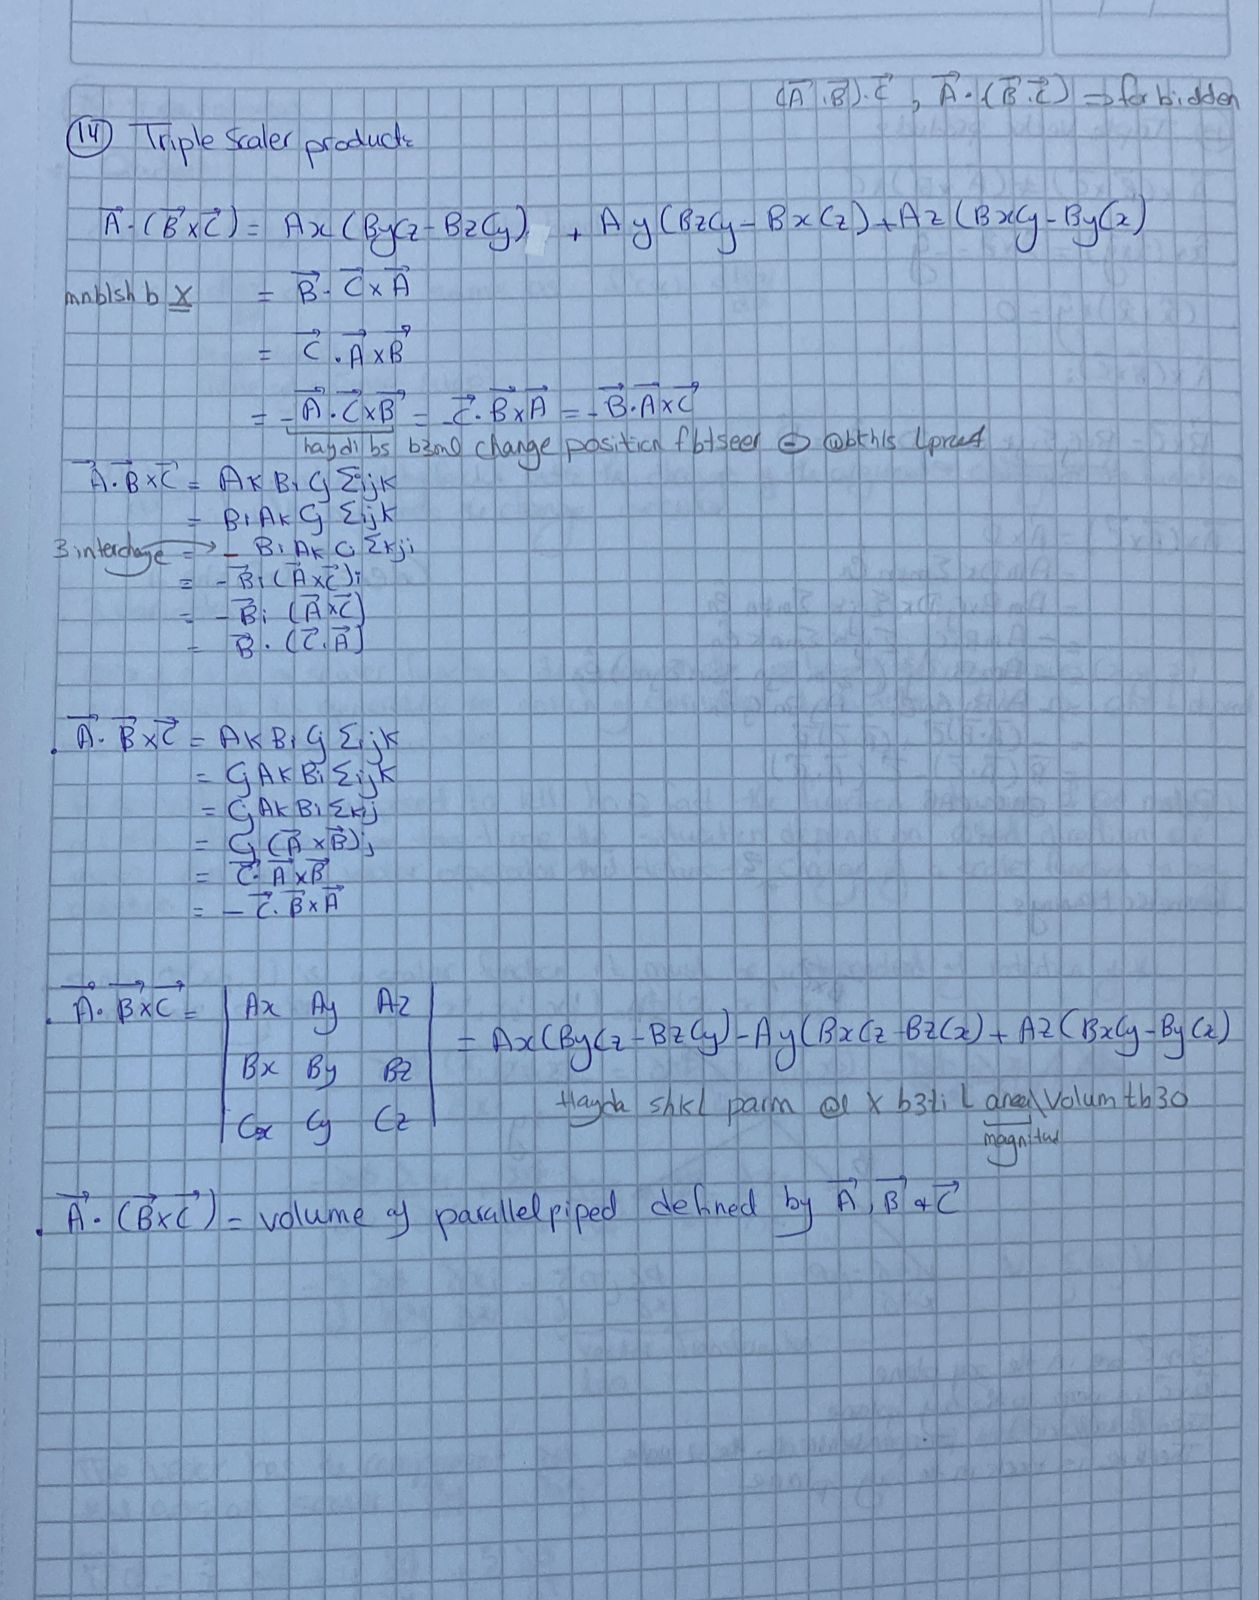 (A⃗.B⃗).C⃗ , A⃗.(B⃗.C⃗) ⇒ forbidden
(14) Triple Scaler product:
A⃗.(B⃗xC⃗) = Ax(ByCz-BzCy) + Ay(BzCy-BxCz)+Az(BxCy-ByCx)
mnblsh b x = B⃗. C⃗xA⃗
= C⃗.A⃗xB⃗
= -A⃗.C⃗xB⃗ = -C⃗.B⃗xA⃗ = -B⃗.A⃗xC⃗
haydi bs b3ml change position fbtseer ⊖
A⃗.B⃗xC⃗ = AK Bi Cj Σijk
= Bi AK Cj Σijk
3 interchage = → - Bi AK Cj Σkji
= -B⃗i(A⃗xC⃗)i
= -B⃗i (A⃗xC⃗)
= B⃗.(C⃗.A⃗)
. A⃗. B⃗xC⃗ = AK Bi Cj Σijk
= Cj AK Bi Σijk
= Cj AK Bi Σkij
= Cj (A⃗xB⃗)j
= C⃗.A⃗xB⃗
= -C⃗.B⃗xA⃗
. A⃗. B⃗xC⃗ = | Ax Ay Az |
| Bx By Bz | = Ax(ByCz-BzCy)-Ay(BxCz-BzCx)+Az(BxCy-ByCx)
| Cx Cy Cz |
Hayda shkl parm @l x b3ti l area\Volum tb3o
magnitud
. A⃗.(B⃗xC⃗) = volume of parallelpiped defined by A⃗, B⃗ & C⃗